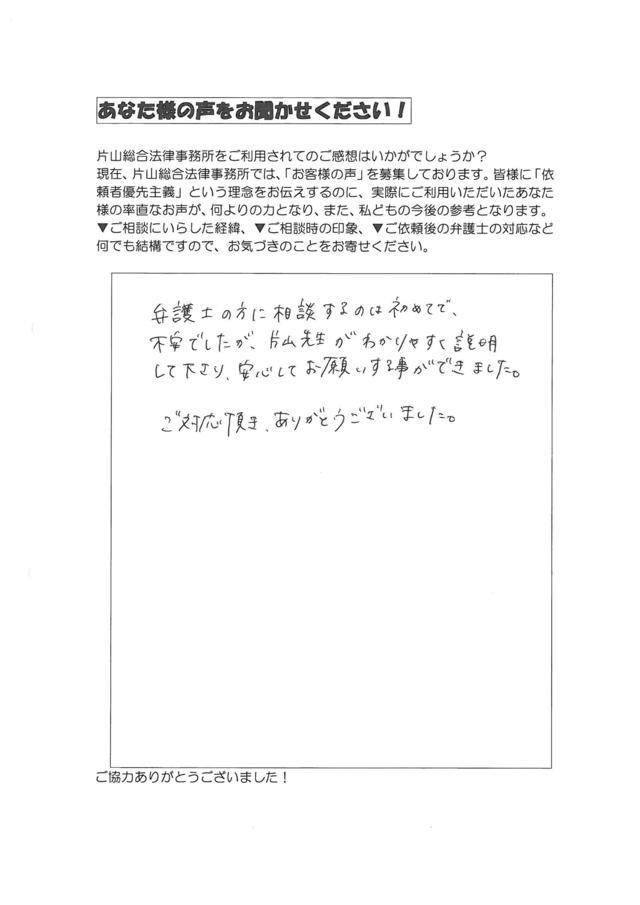 あなた様の声をお聞かせください！
片山総合法律事務所をご利用されてのご感想はいかがでしょうか？
現在、片山総合法律事務所では、「お客様の声」を募集しております。皆様に「依
頼者優先主義」という理念をお伝えするのに、実際にご利用いただいたあなた
様の率直なお声が、何よりの力となり、また、私どもの今後の参考となります。
▼ご相談にいらした経緯、▼ご相談時の印象、▼ご依頼後の弁護士の対応など
何でも結構ですので、お気づきのことをお寄せください。
弁護士の方に相談するのは初めてで、
不安でしたが、片山先生がわかりやすく説明
して下さり、安心してお願いする事ができました。
ご対応頂き、ありがとうございました。
ご協力ありがとうございました！